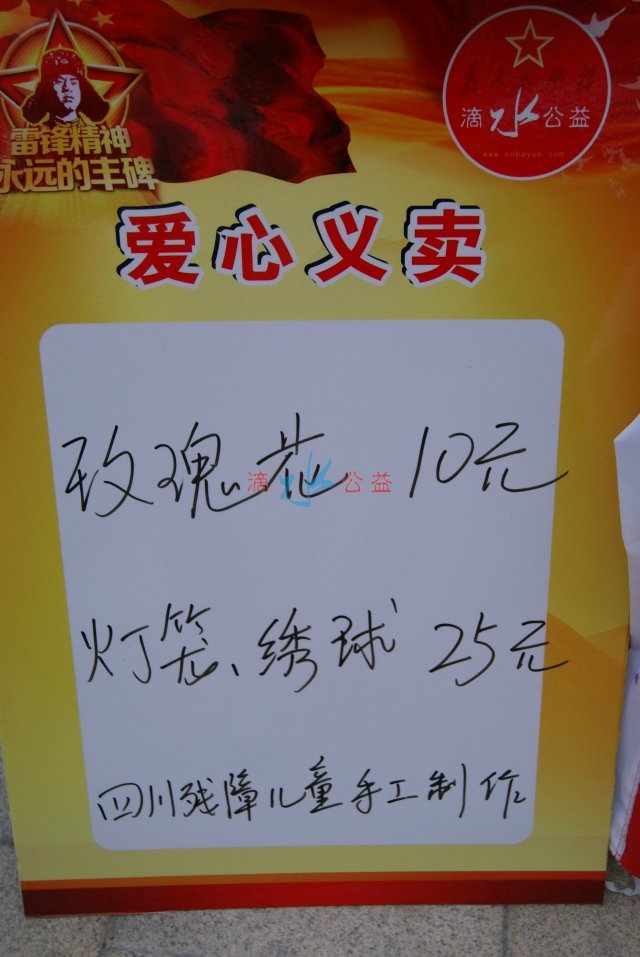 雷锋精神
永远的丰碑
滴水公益
www.cnbayue.com
爱心义卖
玫瑰花 10元
滴水公益
灯笼、绣球 25元
四川残障儿童手工制作